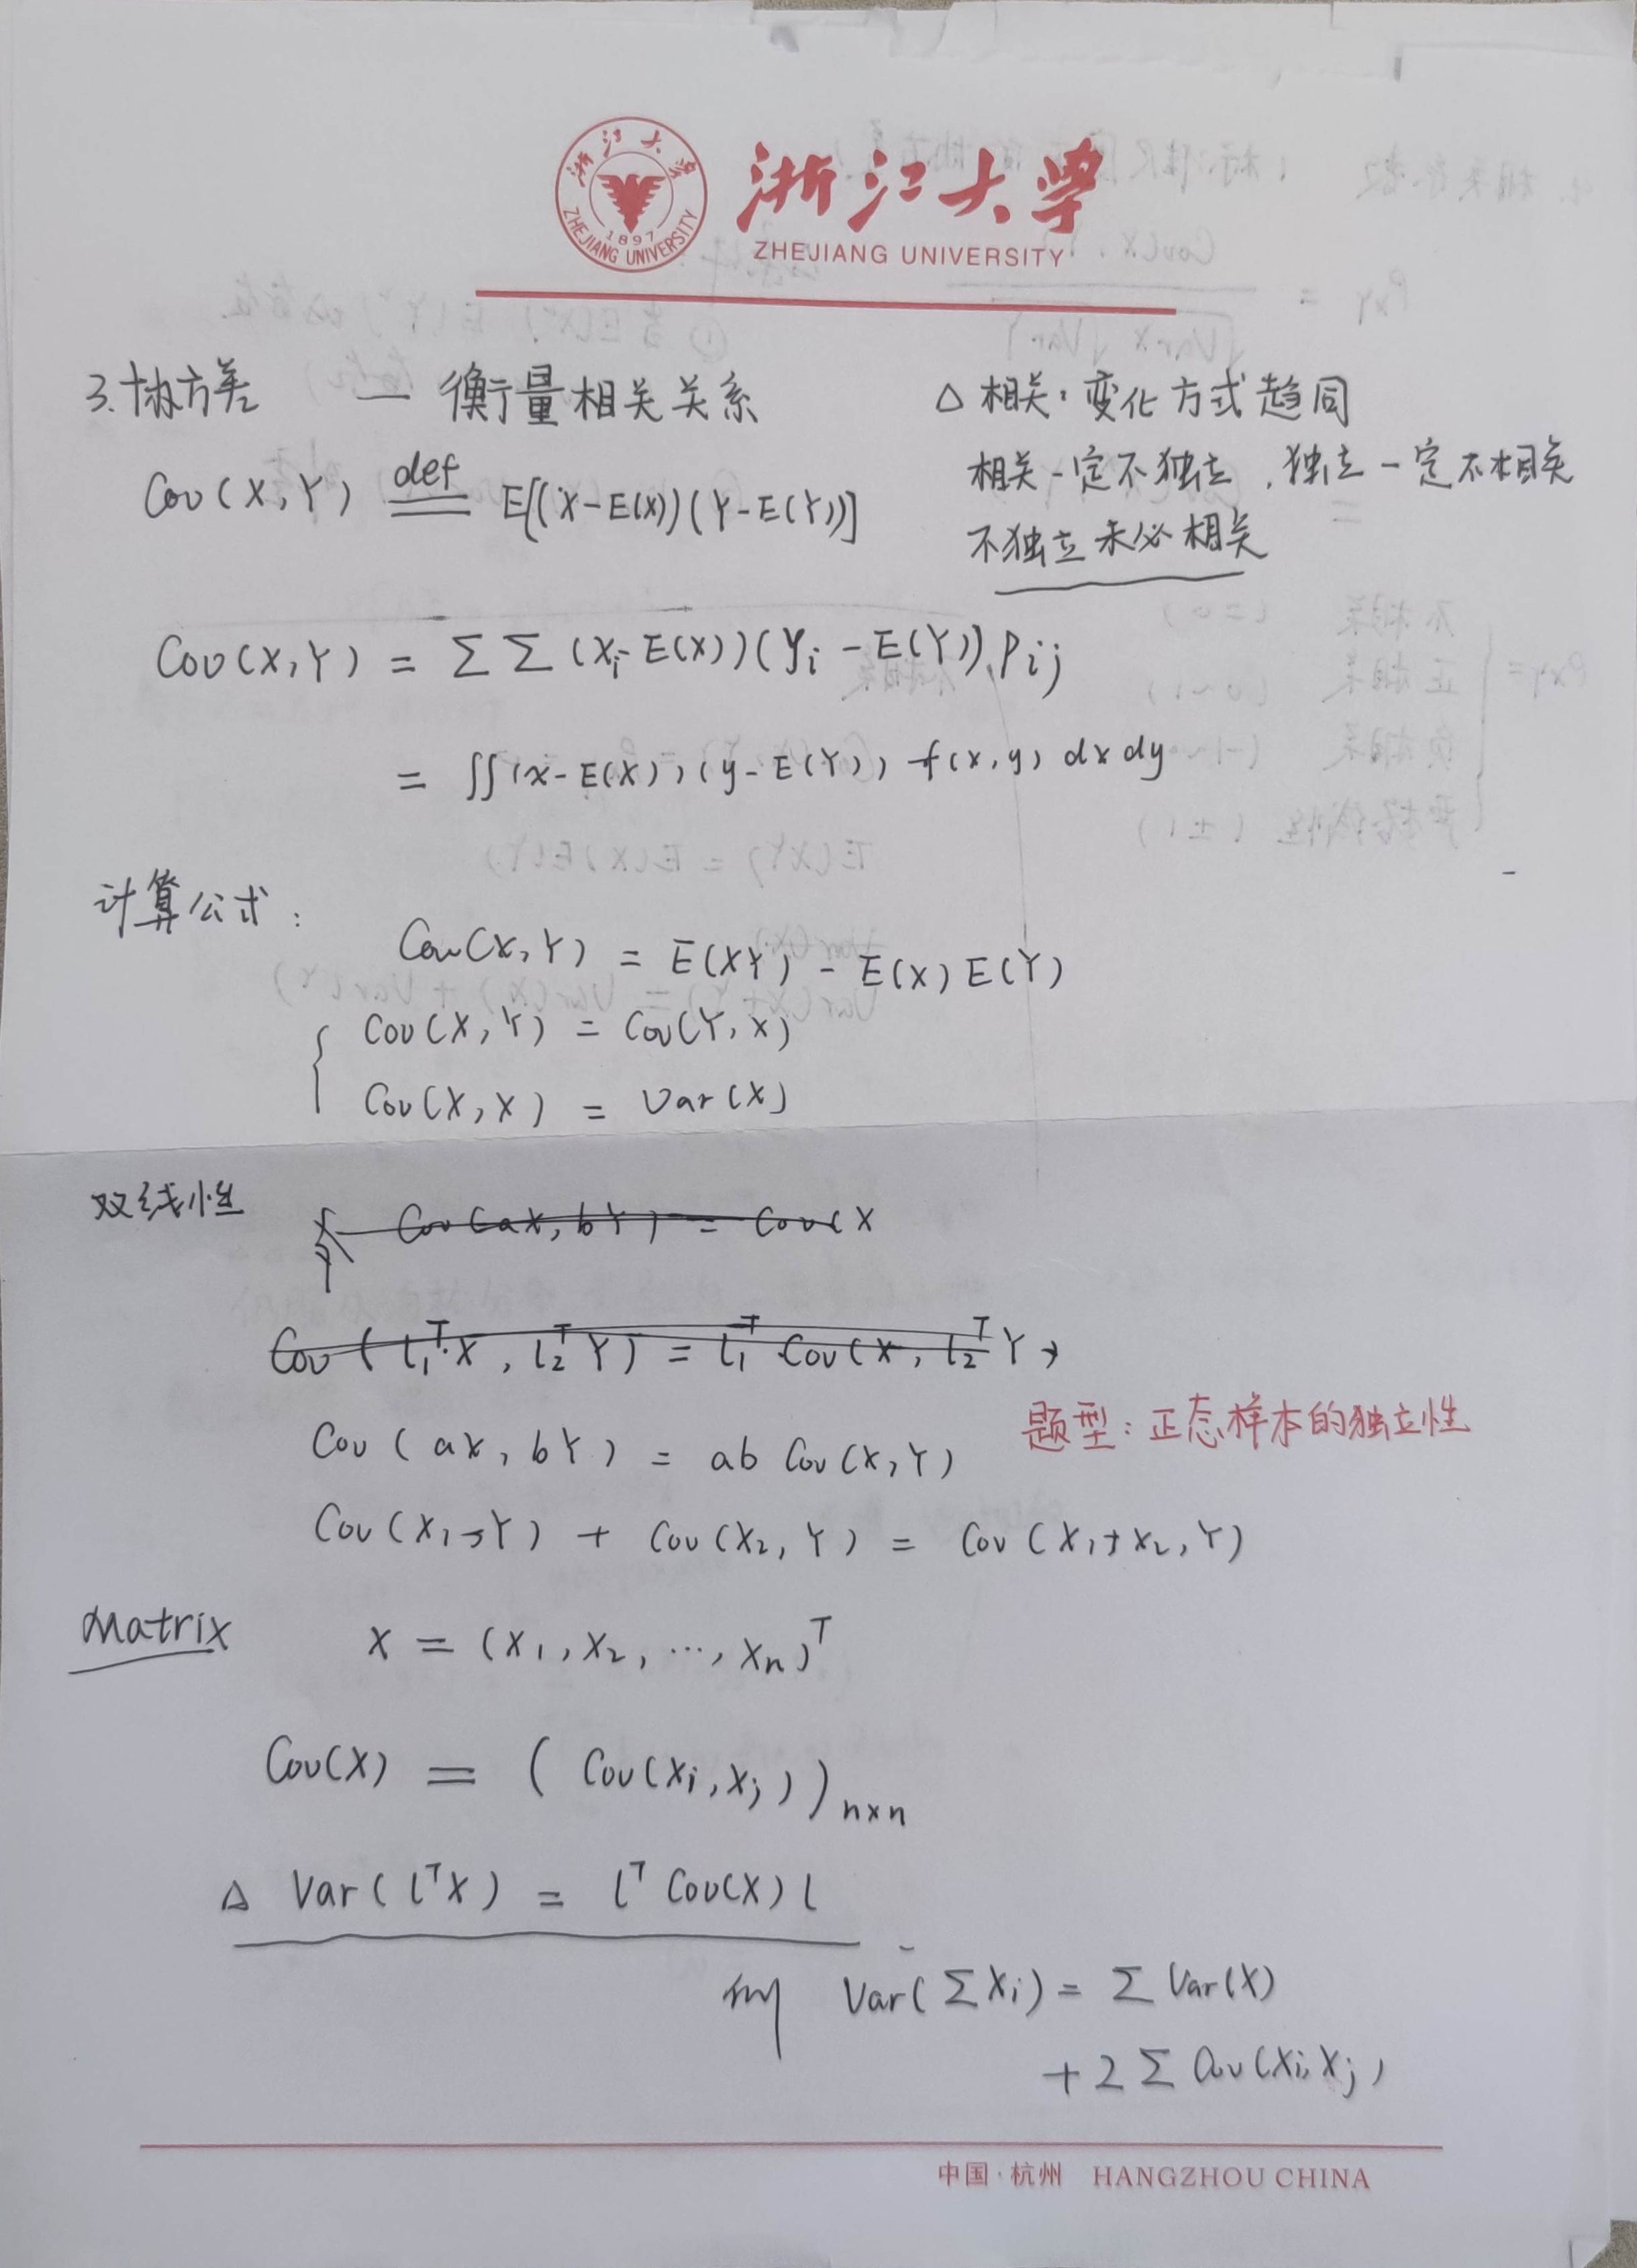 浙江大学
ZHEJIANG UNIVERSITY
浙江大学
ZHEJIANG UNIVERSITY
1897
3.协方差 — 衡量相关关系
△ 相关:变化方式趋同
相关一定不独立,独立一定不相关
不独立未必相关
Cov(X,Y) def== E[(X-E(X))(Y-E(Y))]
Cov(X,Y) = ΣΣ(xi-E(X))(yi-E(Y)).Pij
= ∬(x-E(X))(y-E(Y)) f(x,y) dxdy
计算公式:
Cov(X,Y) = E(XY) - E(X)E(Y)
{ Cov(X,Y) = Cov(Y,X)
Cov(X,X) = Var(X)
双线性
Cov(aX,bY) = Cov(X
Cov(l₁ᵀ·X, l₂ᵀY) = l₁ᵀ·Cov(X, l₂ᵀY)
题型:正态样本的独立性
Cov(aX,bY) = ab Cov(X,Y)
Cov(X₁,Y) + Cov(X₂,Y) = Cov(X₁+X₂,Y)
Matrix X = (X₁,X₂,…,Xn)ᵀ
Cov(X) = (Cov(Xi,Xj))n×n
△ Var(lᵀX) = lᵀCov(X)l
Var(ΣXi) = ΣVar(X)
+2ΣCov(Xi,Xj)
中国·杭州 HANGZHOU CHINA